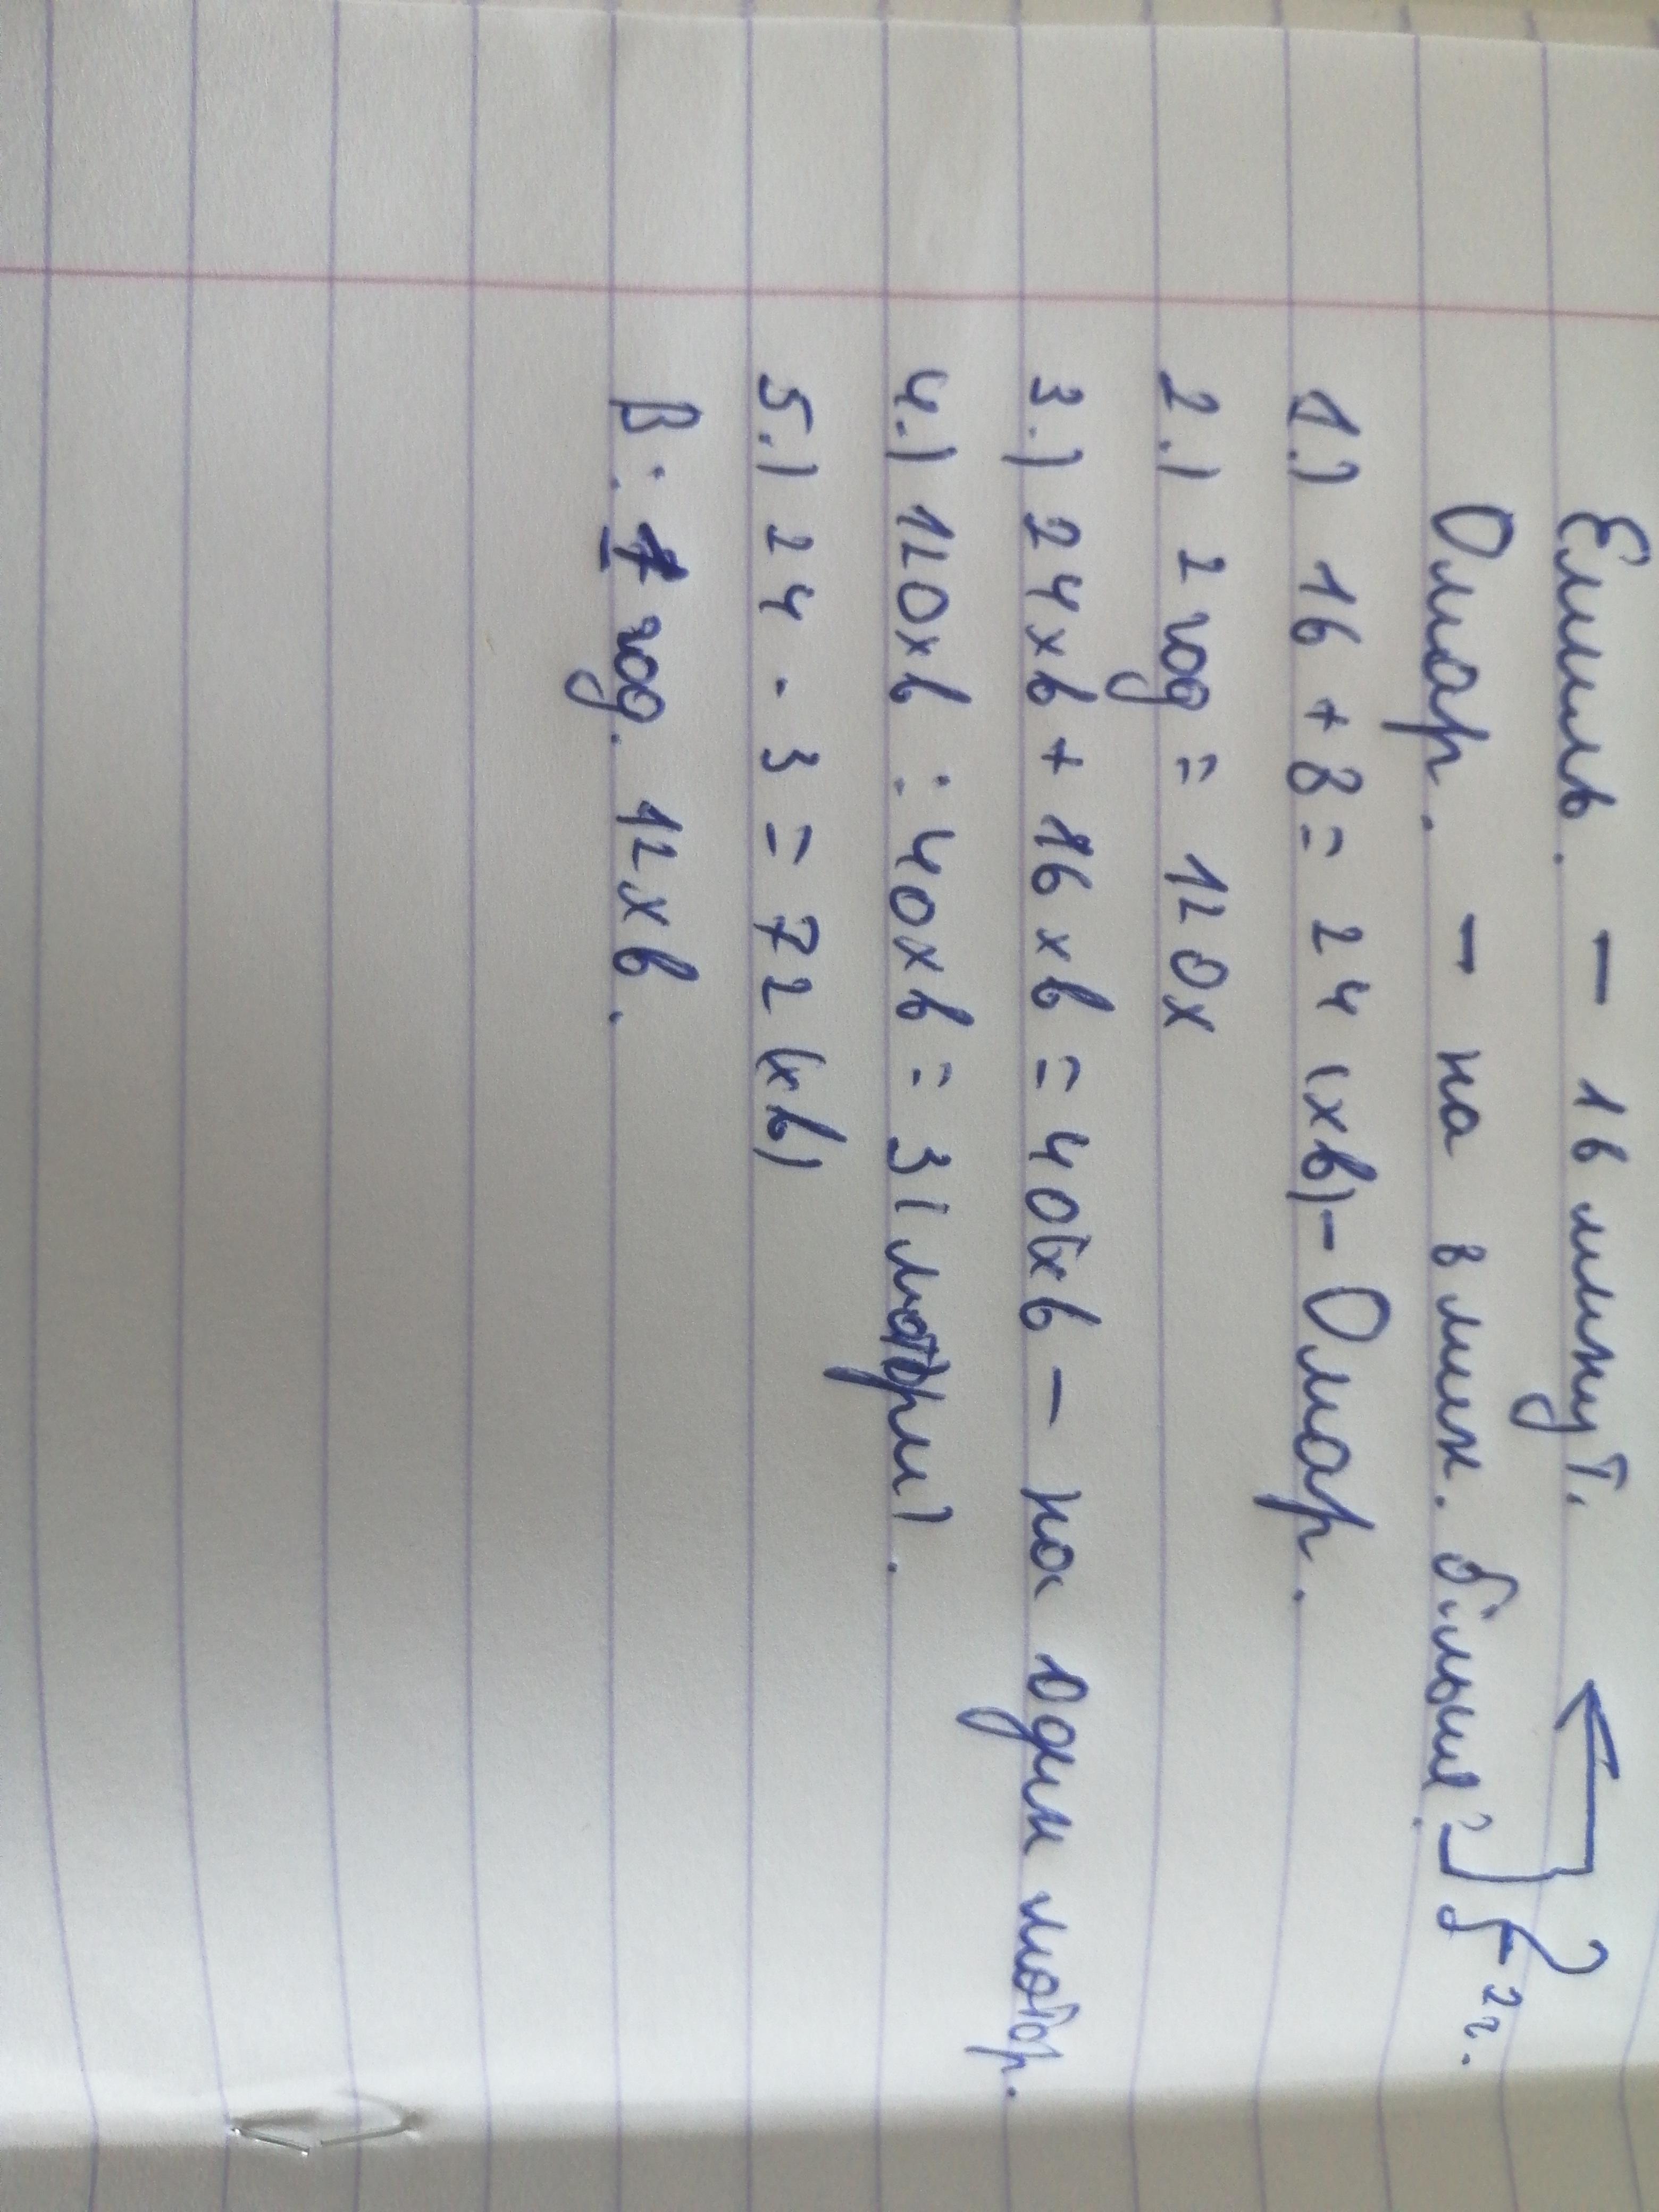 Еммиль. - 16 минут.
Омар. - на 8 мин. більше? } ? } - 2 г.
1.) 16 + 8 = 24 (хв) - Омар.
2.) 2 год = 120х
3.) 24хв + 16хв = 40(хв - на один мотор.
4.) 120хв : 40хв = 3(мотори).
5.) 24 · 3 = 72 (хв)
В: 1 год. 12хв.